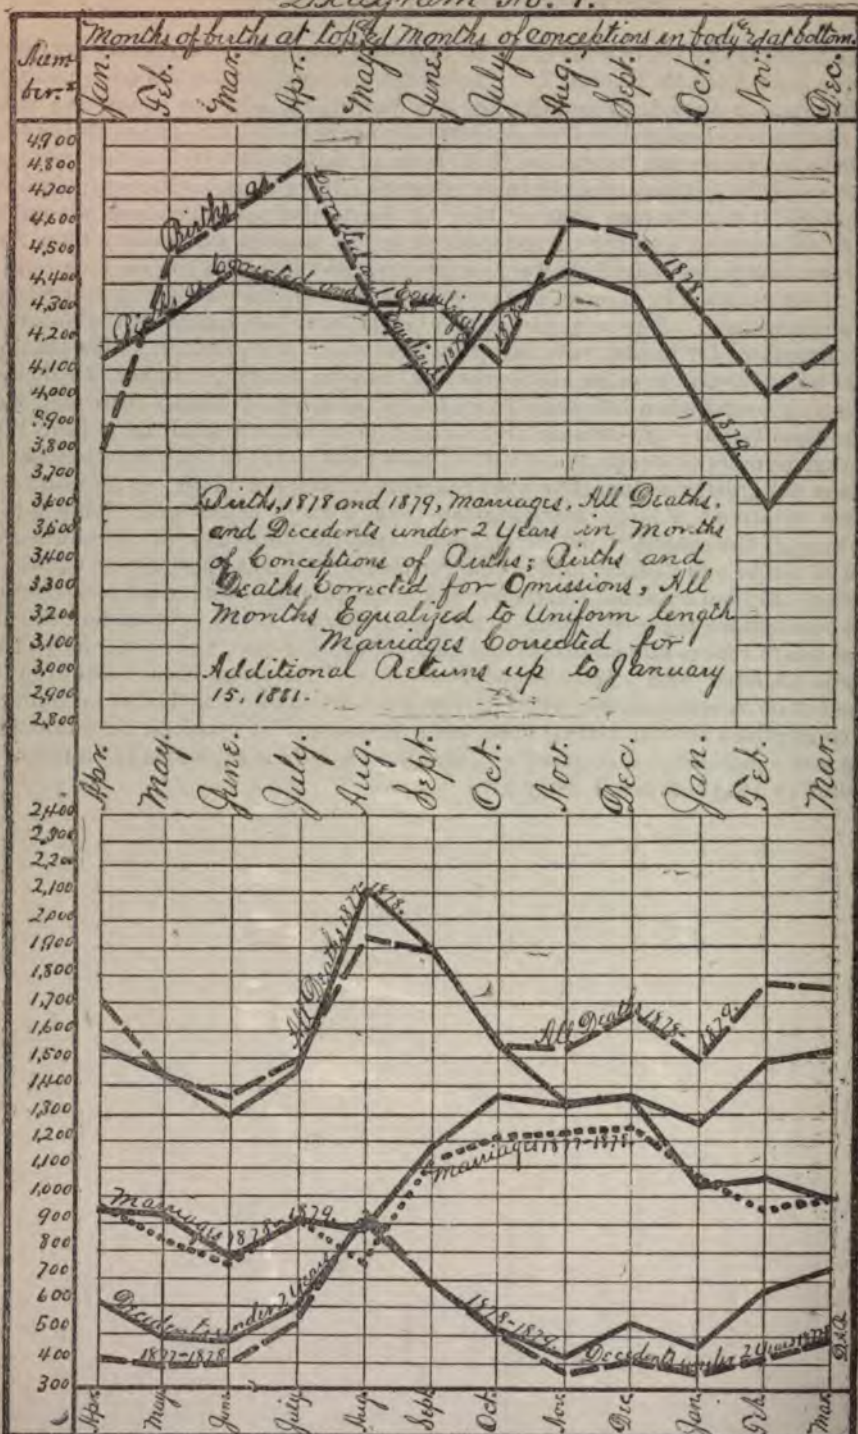 Diagram No. 1.
Months of births at top and Months of conceptions in body and at bottom.
Number.s
Jan. Feb. Mar. Apr. May. June. July. Aug. Sept. Oct. Nov. Dec.
4,900
4,800
4,700
4,600
4,500
4,400
4,300
4,200
4,100
4,000
3,900
3,800
3,700
3,600
3,500
3,400
3,300
3,200
3,100
3,000
2,900
2,800
Births as Corrected and Equalized 1878.
Births as Corrected and Equalized 1879.
1878.
1879.
Births, 1878 and 1879, Marriages, All Deaths,
and Decedents under 2 Years in Months
of Conceptions of Births; Births and
Deaths Corrected for Omissions, All
Months Equalized to Uniform length
Marriages Corrected for
Additional Returns up to January
15, 1881.
Apr. May. June. July. Aug. Sept. Oct. Nov. Dec. Jan. Feb. Mar.
2,400
2,300
2,200
2,100
2,000
1,900
1,800
1,700
1,600
1,500
1,400
1,300
1,200
1,100
1,000
900
800
700
600
500
400
300
All Deaths 1877-1878.
All Deaths 1878-1879.
Marriages 1877-1878.
Marriages 1878-1879.
Decedents under 2 Years
1878-1879.
1877-1878
Decedents under 2 Years
Apr. May June July Aug. Sept. Oct. Nov. Dec. Jan. Feb. Mar.